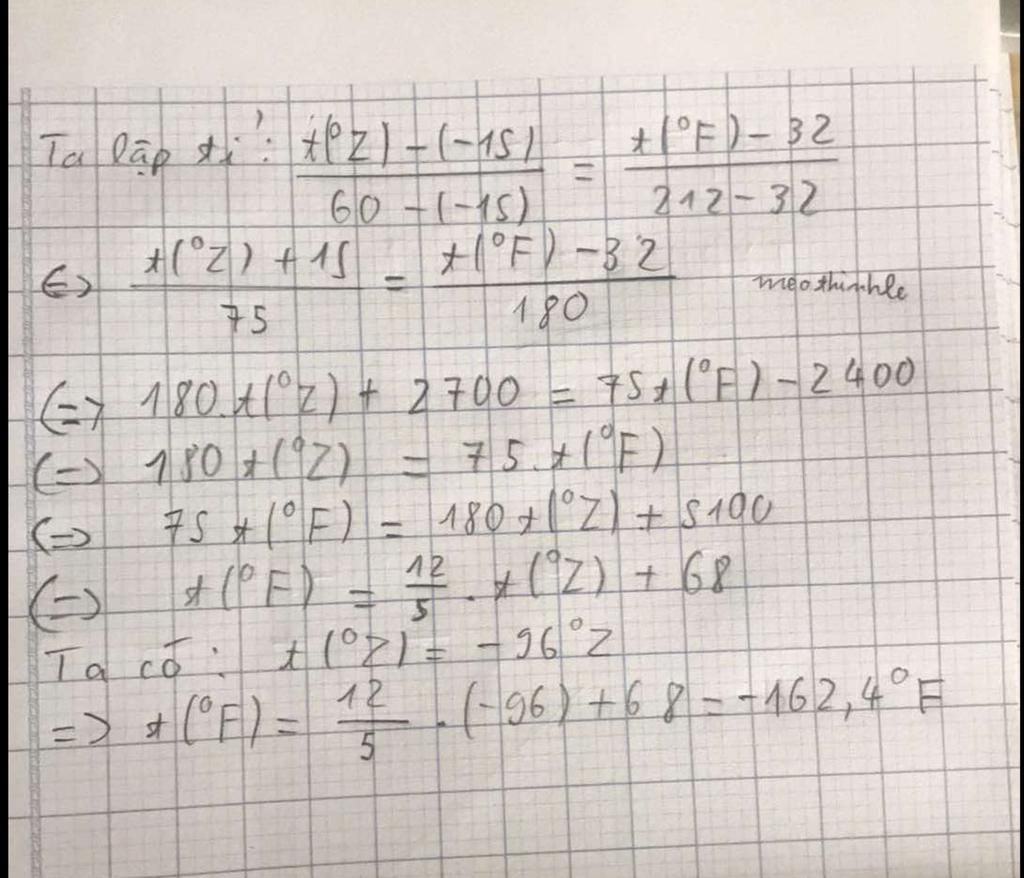 Ta lập tỉ: (t(°Z) - (-15))/(60 - (-15)) = (t(°F) - 32)/(212 - 32)
<=> (t(°Z) + 15)/75 = (t(°F) - 32)/180 meothinhle
<=> 180.t(°Z) + 2700 = 75t(°F) - 2400
<=> 180t(°Z) = 75.t(°F)
<=> 75t(°F) = 180t(°Z) + 5100
<=> t(°F) = 12/5 . t(°Z) + 68
Ta có: t(°Z) = -96°Z
=> t(°F) = 12/5 . (-96) + 68 = -162,4°F